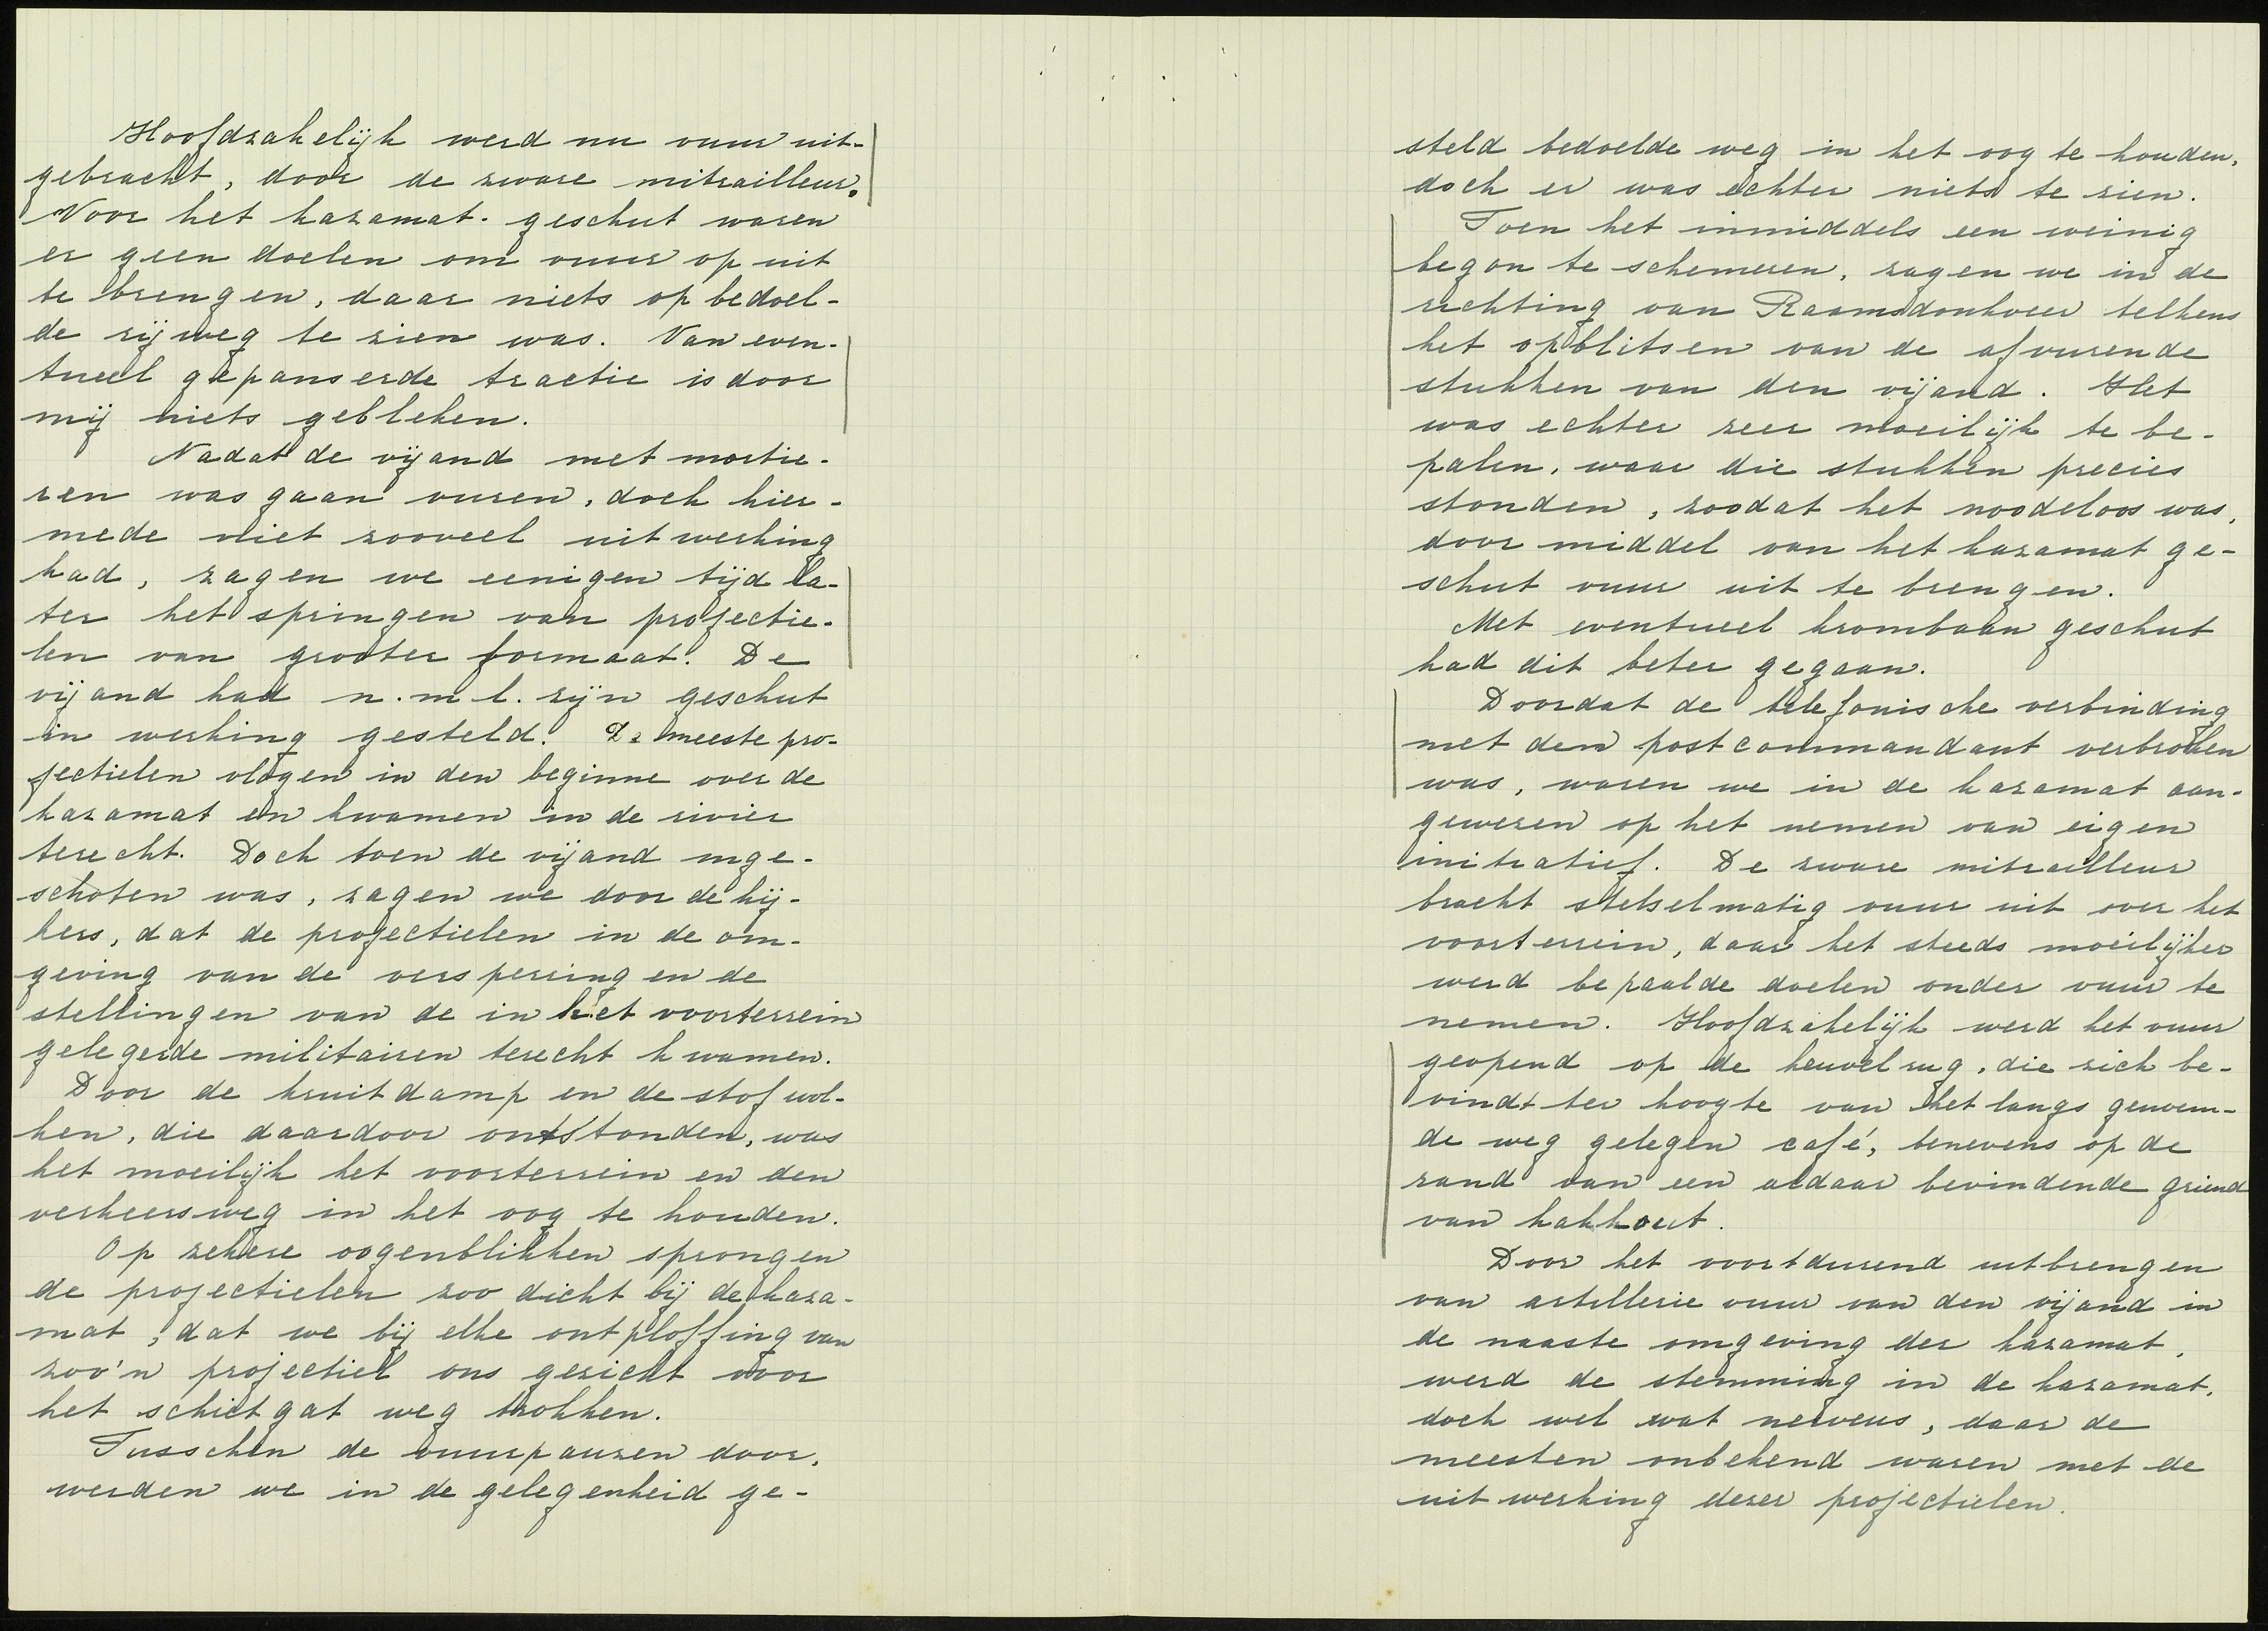 Hoofdzakelijk werd nu vuur uit-
gebracht, door de zware mitrailleur.
Voor het kazamat-geschut waren
er geen doelen om vuur op uit
te brengen, daar niets op bedoel-
de rijweg te zien was. Van even-
tueel gepanserde tractie is door
mij niets gebleken.
Nadat de vijand met mortie-
ren was gaan vuren, doch hier-
mede niet zooveel uitwerking
had, zagen we eenigen tijd la-
ter het springen van projectie-
len van grooter formaat. De
vijand had n.m.l. zijn geschut
in werking gesteld. De meeste pro-
jectielen vlogen in den beginne over de
kazamat en kwamen in de rivier
terecht. Doch toen de vijand inge-
schoten was, zagen we door de kij-
kers, dat de projectielen in de om-
geving van de versperring en de
stellingen van de in het voorterrein
gelegerde militairen terecht kwamen.
Door de kruitdamp en de stofwol-
ken, die daardoor ontstonden, was
het moeilijk het voorterrein en den
verkeersweg in het oog te houden.
Op zekere oogenblikken sprongen
de projectielen zoo dicht bij de kaza-
mat, dat we bij elke ontploffing van
zoo'n projectiel ons gezicht voor
het schietgat weg trokken.
Tusschen de vuurpauzen door,
werden we in de gelegenheid ge-
steld bedoelde weg in het oog te houden,
doch er was echter niets te zien.
Toen het inmiddels een weinig
begon te schemeren, zagen we in de
richting van Raamsdonkveer telkens
het opblitsen van de afvurende
stukken van den vijand. Het
was echter zeer moeilijk te be-
palen, waar die stukken precies
stonden, zoodat het noodeloos was,
door middel van het kazamat ge-
schut vuur uit te brengen.
Met eventueel krombaan geschut
had dit beter gegaan.
Doordat de telefonische verbinding
met den postcommandant verbroken
was, waren we in de kazamat aan-
gewezen op het nemen van eigen
initiatief. De zware mitrailleur
bracht stelselmatig vuur uit over het
voorterrein, daar het steeds moeilijker
werd bepaalde doelen onder vuur te
nemen. Hoofdzakelijk werd het vuur
geopend op de heuvelrug, die zich be-
vindt ter hoogte van het langs genoem-
de weg gelegen café, benevens op de
rand van een aldaar bevindende griend
van hakhout.
Door het voortdurend uitbrengen
van artillerie vuur van den vijand in
de naaste omgeving der kazamat,
werd de stemming in de kazamat,
doch wel wat nerveus, daar de
meesten onbekend waren met de
uitwerking dezer projectielen.